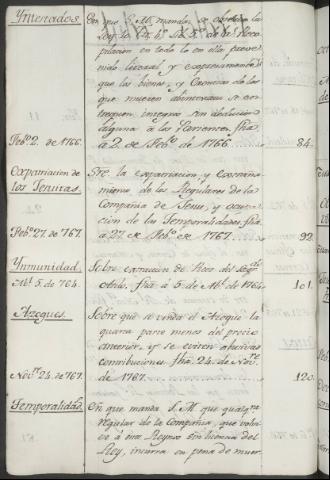 Yntestados.
En que S. M. manda se observe la
Ley
lib. 5. de la Reco-
pilacion en todo lo en ella preve-
nido literal y expresamente
que los bienes, y herencias de los
que mueren abintestato se en-
treguen integros sin deduccion
alguna à los Parientes. fha.
Feb.º 2. de 1766.
à 2. de Feb.º de 1766.
84.
Expatriacion de
los Jesuitas
Sre. la expatriacion, y extraña-
miento de los Regulares de la
Compañia de Jesus, y ocupa-
cion de las Temporalidades. fha
Feb.º 27. de 767.
à 27. de Feb.º de 1767.
92.
Ynmunidad.
Sobre extraccion de Reos del Sag.do
5. de 764.
fha. à 5. de
de 1764
101.
Azogues.
Sobre que se venda el Azogue la
quarta parte menos del precio
anterior, y se eviten abusivas
contribuciones. fha. 24. de Nov.re
Nov.re 24. de 767.
de 1767.
120.
Temporalidad.s
En que manda S. M. que qualq.ra
regular de la Compañia, que volvie-
re à estos Reynos sin licencia del
Rey, incurra en pena de muer-